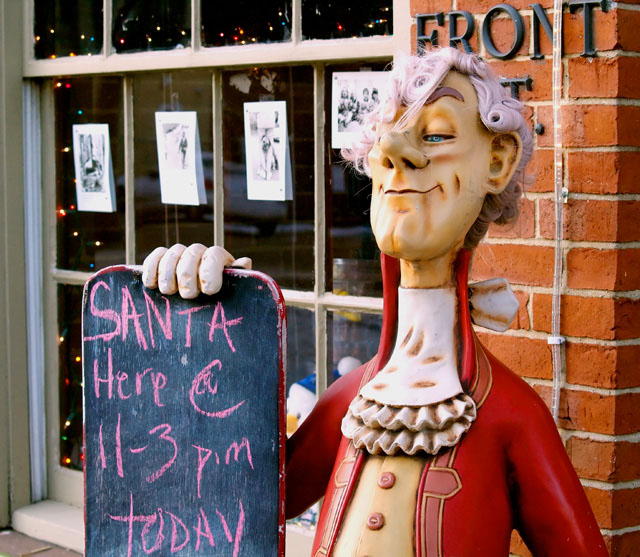 FRONT
T.
SANTA
Here @
11-3 pm
TODAY